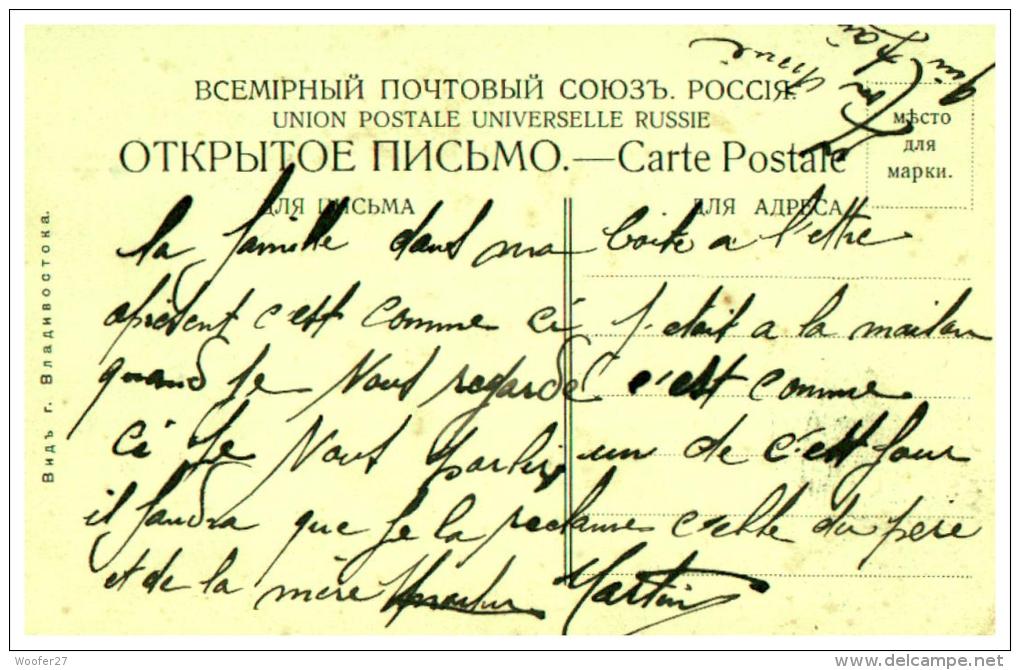 ВСЕМІРНЫЙ ПОЧТОВЫЙ СОЮЗЪ. РОССІЯ.
UNION POSTALE UNIVERSELLE RUSSIE
ОТКРЫТОЕ ПИСЬМО.—Carte Postale
мѣсто
для
марки.
ДЛЯ ПИСЬМА
ДЛЯ АДРЕСА
la famille dans ma boite a l'ettre
apresent c'est comme ci j'etait a la maison
quand je Vous regarde c'est comme
ci je Vous parler un de c'est jour
il faudra que je la reclame celle du père
et de la mère Martin
Видъ г. Владивостока.
Woofer27
www.delcampe.net